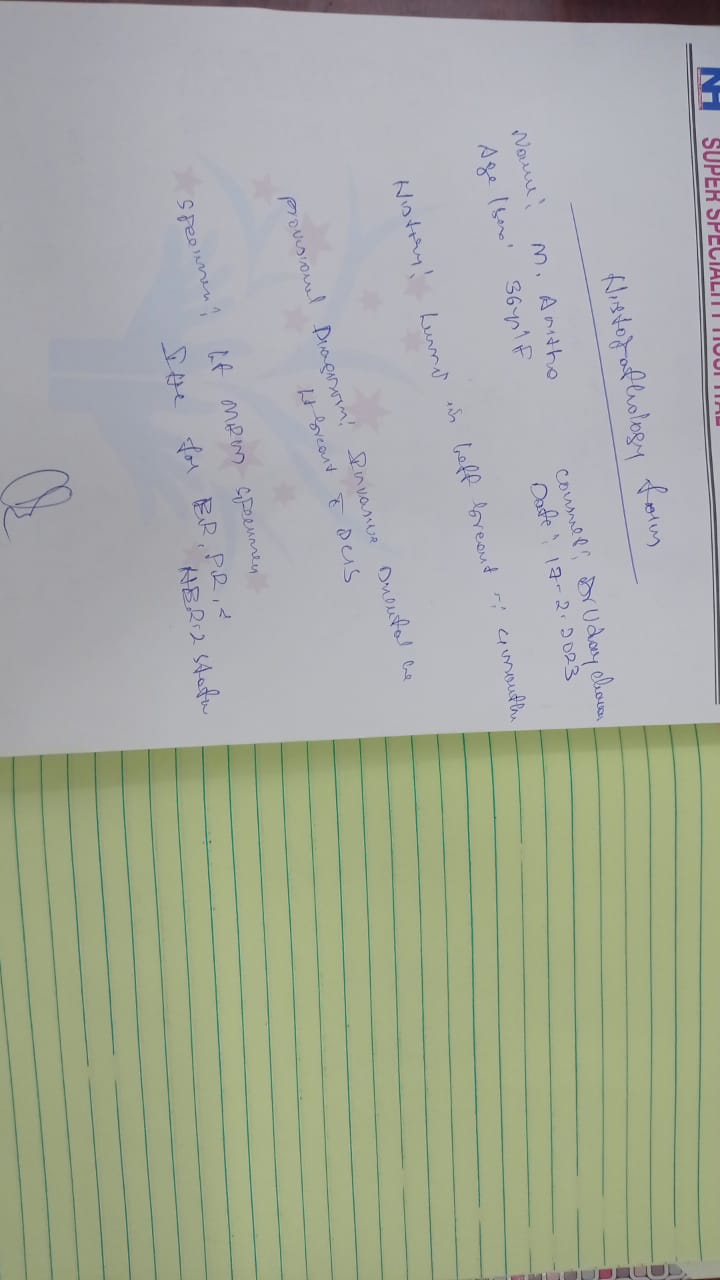 NH SUPER SPECIALITY HOSPITAL
Histopathology form
Name: M. Anitha
Consul: Dr Uday
Age/Sex: 36yr/F
Date: 17-2-2023
History: Lump in left breast :: 4 months
Provisional Diagnosis: Invasive Ductal ca
lt breast c̄ DCIS
Specimen: lt MRM specimen
IHC for ER, PR, &
HER-2 status